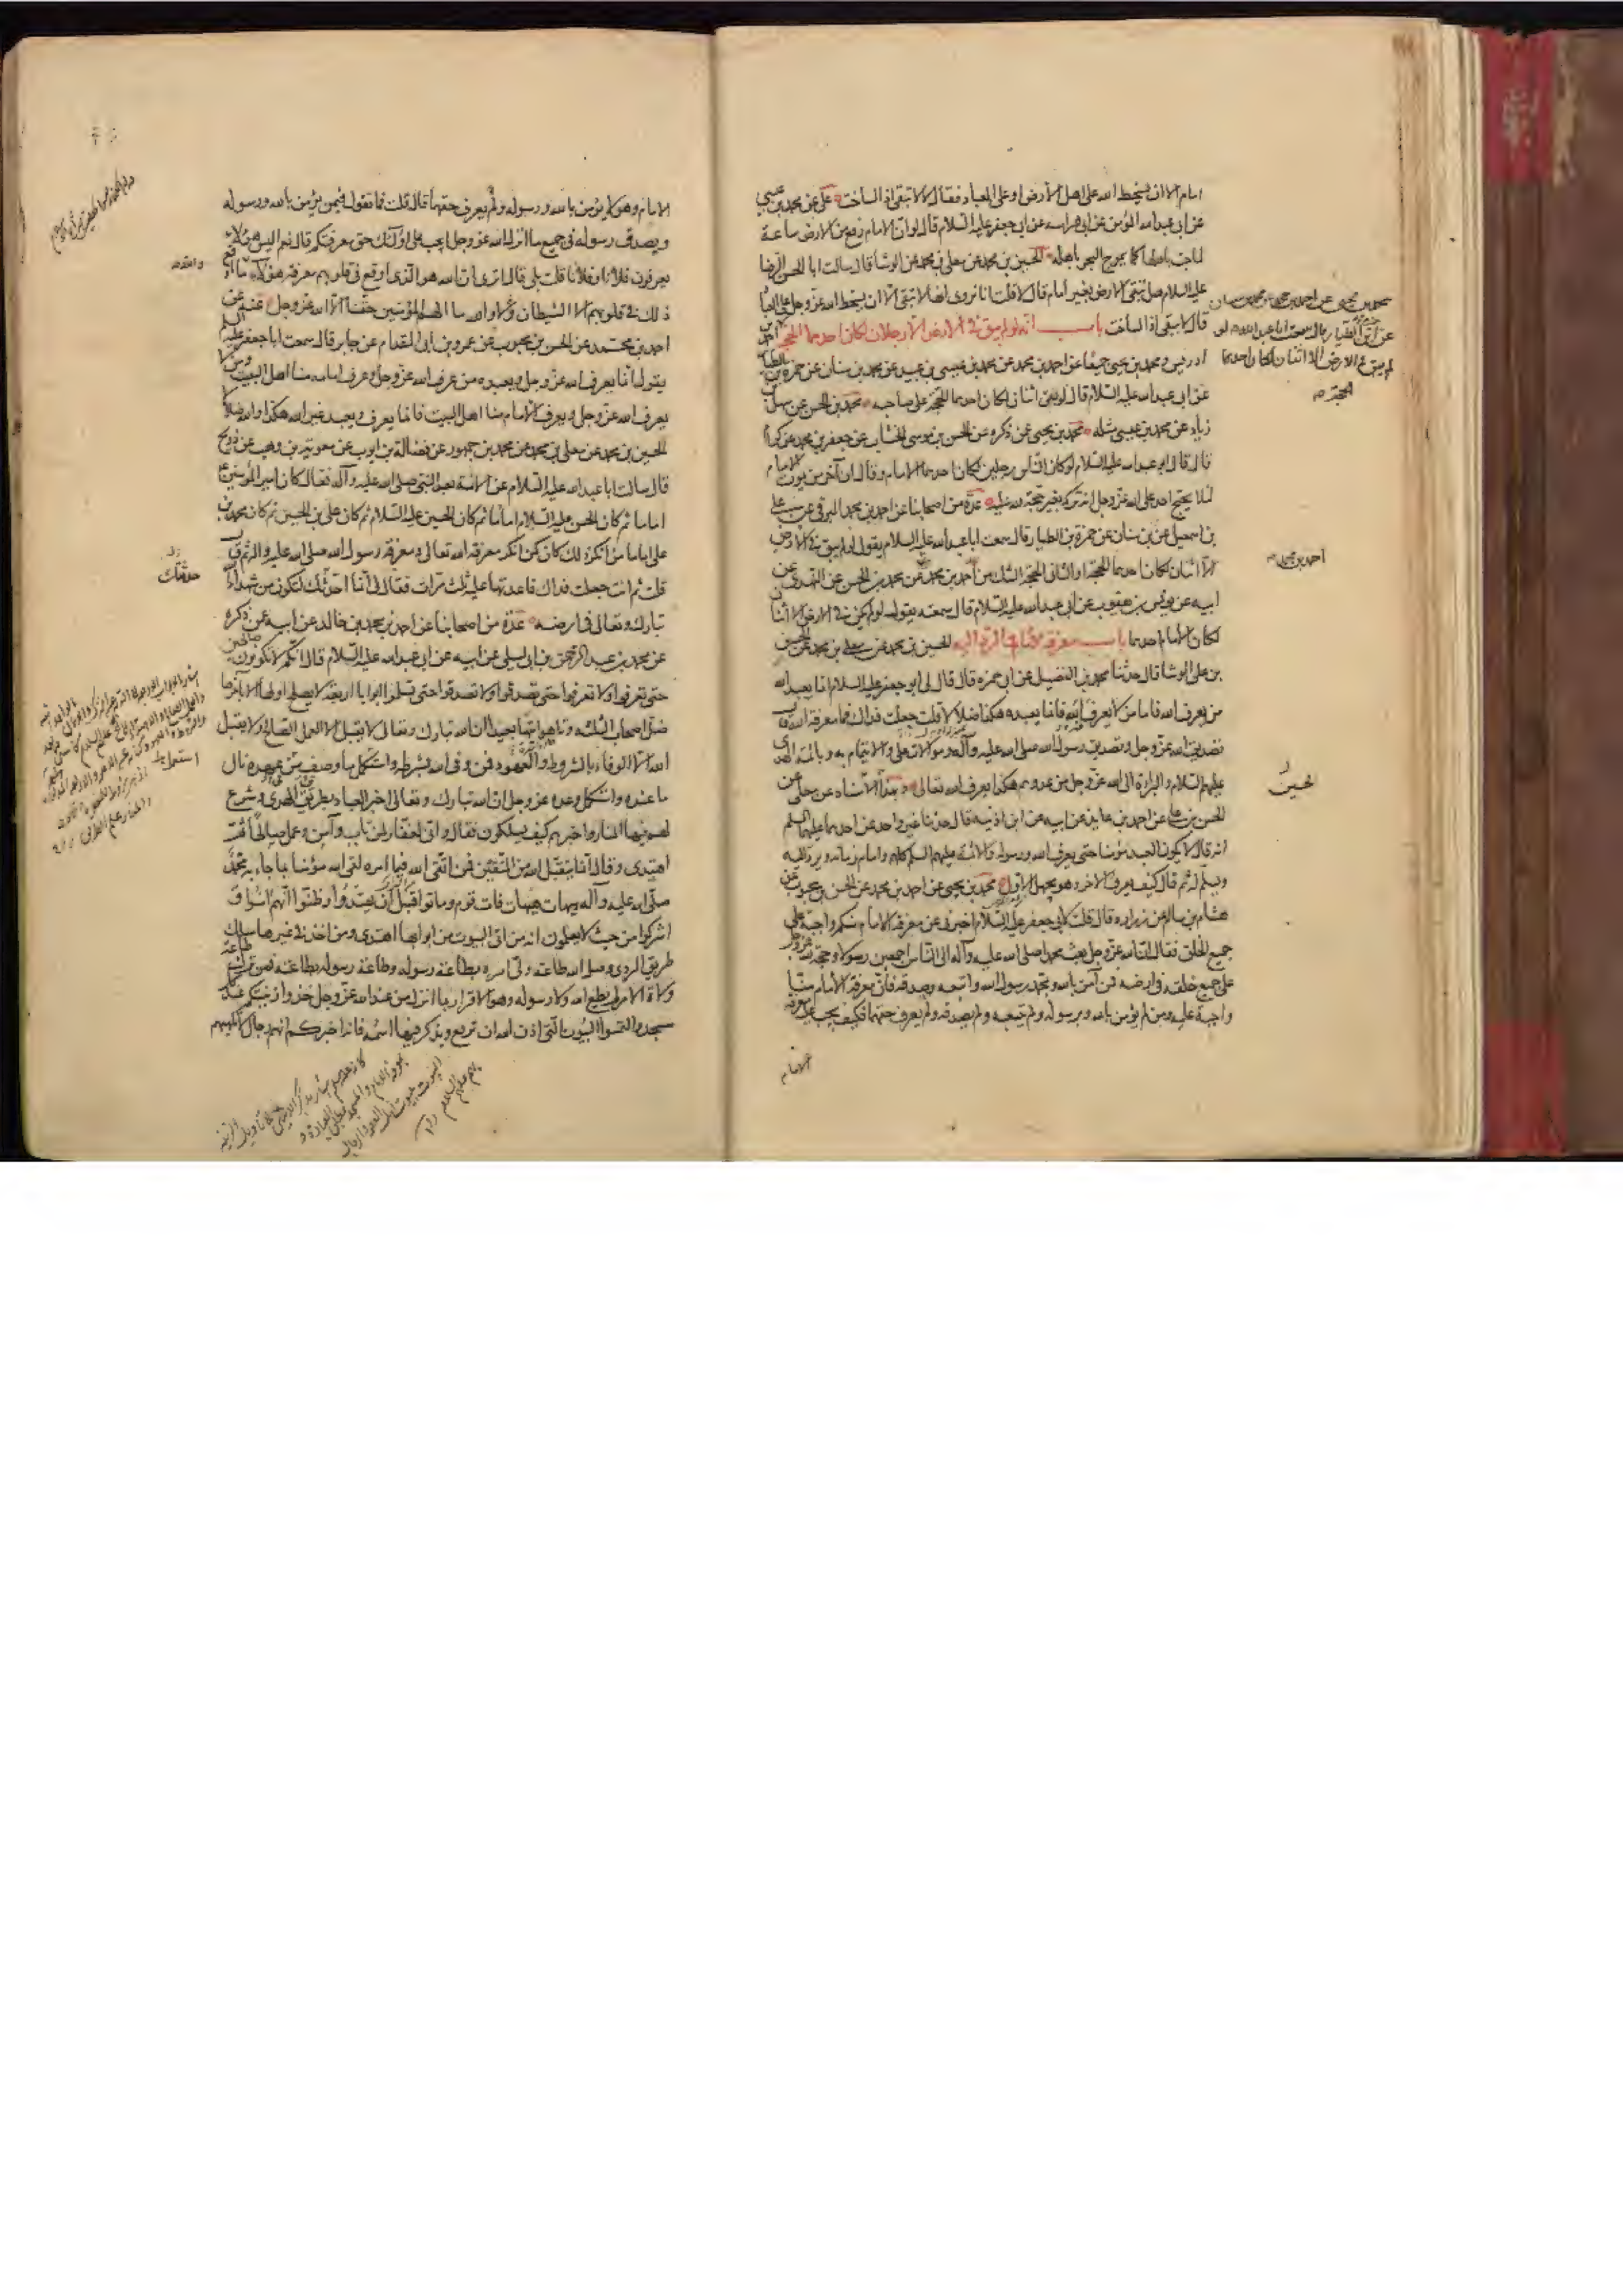 امام الا ان يسخط الله على اهل الارض او على العباد فقال لا لا تبقى اذا لساخت علي عن محمد بن عيسى
عن ابي عبد الله المؤمن عن ابي هراسة عن ابي جعفر عليه السلام قال لو ان الامام رفع من الارض ساعة
لماجت باهلها كما يموج البحر باهله الحسين بن محمد عن معلى بن محمد عن الوشا قال سالت ابا الحسن الرضا
عليه السلام هل تبقى الارض بغير امام قال لا قلت انا نروى انها لا تبقى الا ان يسخط الله عز وجل على العباد
قال لا تبقى اذا لساخت باب انه لو لم يبق في الارض الا رجلان لكان احدهما الحجة احمد بن
ادريس ومحمد بن يحيى جميعا عن احمد بن محمد عن محمد بن عيسى بن عبيد عن محمد بن سنان عن حمزة بن الطيار
عن ابي عبد الله عليه السلام قال لو بقى اثنان لكان احدهما الحجة على صاحبه محمد بن الحسن عن سهل بن
زياد عن محمد بن عيسى مثله محمد بن يحيى عن ذكره عن الحسن بن موسى الخشاب عن جعفر بن محمد عن كرام
قال قال ابو عبد الله عليه السلام لو كان الناس رجلين لكان احدهما الامام وقال ان آخر من يموت الامام
لئلا يحتج احد على الله عز وجل انه تركه بغير حجة لله عليه عدة من اصحابنا عن احمد بن محمد البرقي عن علي
بن اسمعيل عن بن سنان عن حمزة بن الطيار قال سمعت ابا عبد الله عليه السلام يقول لو لم يبق في الارض
الا اثنان لكان احدهما الحجة او الثاني الحجة الشك من احمد بن محمد عن محمد بن الحسن عن النهدي عن
ابيه عن يونس بن يعقوب عن ابي عبد الله عليه السلام قال سمعته يقول لو لم يكن في الارض الا اثنان
لكان الامام احدهما باب معرفة الامام والرد اليه الحسين بن محمد عن معلى بن محمد عن الحسن
بن علي الوشا قال حدثنا محمد بن الفضيل عن ابي حمزه قال قال لي ابو جعفر عليه السلام انما يعبد الله
من يعرف الله فاما من لا يعرف الله فانما يعبده هكذا ضلالا قلت جعلت فداك فما معرفة الله قال
تصديق الله عز وجل وتصديق رسول الله صلى الله عليه وآله وموالات علي والايتمام به وبائمة الهدى
عليهم السلام والبراءة الى الله عز وجل من عدوهم هكذا يعرف الله تعالى
الحسن بن علي عن احمد بن عايذ عن ابيه عن ابن اذينه قال حدثنا غير واحد عن احدهما عليهما السلم
انه قال لا يكون العبد مؤمنا حتى يعرف الله ورسوله والائمة عليهم السلم كلهم وامام زمانه ويرد اليه
ويسلم له ثم قال كيف يعرف الاخر وهو يجهل الاول محمد بن يحيى عن احمد بن محمد عن الحسن بن محبوب عن
هشام بن سالم عن زراره قال قلت لابي جعفر عليه السلام اخبرني عن معرفة الامام منكم واجبة على
جميع الخلق فقال ان الله عز وجل بعث محمدا صلى الله عليه وآله الى الناس اجمعين رسولا وحجة لله عز وجل
على جميع خلقه في ارضه فمن آمن بالله وبمحمد رسول الله واتبعه وصدقه فان معرفة الامام منا
واجبة عليه ومن لم يؤمن بالله وبرسوله ولم يتبعه ولم يصدقه ولم يعرف حقهما فكيف يجب عليه معرفة
الامام
محمد بن يحيى عن احمد بن محمد عن محمد بن سنان
عن ابن الطيار قال سمعت ابا عبد الله يقول لو
لم يبق في الارض الا اثنان لكان احدهما
الحجة صح
احمد بن محمد صح
الحسين
الامام وهو لا يؤمن بالله ورسوله ولم يعرف حقهما قال قلت فما تقول فيمن يؤمن بالله ورسوله
ويصدق رسوله في جميع ما انزل الله عز وجل ايجب على اولئك حق معرفتكم قال نعم اليس هؤلاء
يعرفون فلانا وفلانا قلت بلى قال اترى ان الله هو الذي اوقع في قلوبهم معرفة هؤلاء
ذلك في قلوبهم الا الشيطان لا والله ما الهم المؤمنين حقنا الا الله عز وجل عنه عن
احمد بن محمد عن الحسن بن محبوب عن عمرو بن ابي المقدام عن جابر قال سمعت ابا جعفر عليه السلم
يقول انما يعرف الله عز وجل ويعبده من عرف الله عز وجل وعرف امامه منا اهل البيت ومن لا
يعرف الله عز وجل ويعرف الامام منا اهل البيت فانما يعرف ويعبد غير الله هكذا والله ضلالا
الحسين بن محمد عن معلى بن محمد عن محمد بن جمهور عن فضالة بن ايوب عن معوية بن وهب عن ذريح
قال سالت ابا عبد الله عليه السلام عن الائمة بعد النبي صلى الله عليه وآله فقال كان امير المؤمنين ع
اماما ثم كان الحسن عليه السلام اماما ثم كان الحسين عليه السلام ثم كان علي بن الحسين ثم كان محمد بن
علي اماما من انكر ذلك كان كمن انكر معرفة الله تعالى ومعرفة رسول الله صلى الله عليه واله ثم قال
قلت ثم انت جعلت فداك فاعدتها عليه ثلث مرات فقال لي انما احدثك لتكون من شهداء الله
تبارك وتعالى في ارضه عدة من اصحابنا عن احمد بن محمد بن خالد عن ابيه عن ذكره
عن محمد بن عبد الرحمن بن ابي ليلى عن ابيه عن ابي عبد الله عليه السلام قال انكم لا تكونون صالحين
حتى تعرفوا ولا تعرفوا حتى تصدقوا ولا تصدقوا حتى تسلموا ابوابا اربعة لا يصلح اولها الا باخرها
ضل اصحاب الثلثة وتاهوا تيها بعيدا ان الله تبارك وتعالى لا يقبل الا العمل الصالح ولا يقبل
الله الا الوفاء بالشروط والعهود فمن وفى الله بشرطه واستكمل ما وصف في عهده نال
ما عنده واستكمل وعده عز وجل ان الله تبارك وتعالى اخبر العباد بطريق الهدى وشرع
لهم فيها المنار واخبرهم كيف يسلكون فقال واني لغفار لمن تاب وآمن وعمل صالحا ثم
اهتدى وقال انما يتقبل الله من المتقين فمن اتقى الله فيما امره لقى الله مؤمنا بما جاء به محمد
صلى الله عليه وآله هيهات هيهات فات قوم وماتوا قبل ان يهتدوا وظنوا انهم آمنوا و
اشركوا من حيث لا يعلمون انه من اتى البيوت من ابوابها اهتدى ومن اخذ في غيرها سلك
طريق الردى وصل الله طاعة ولي امره بطاعة رسوله وطاعة رسوله بطاعته فمن ترك طاعة
ولاة الامر لم يطع الله ولا رسوله وهو الاقرار بما انزل من عند الله عز وجل خذوا زينتكم عند كل
مسجد والتمسوا البيوت التي اذن الله ان ترفع ويذكر فيها اسمه فانه اخبركم انهم رجال لا تلهيهم
حدثتك